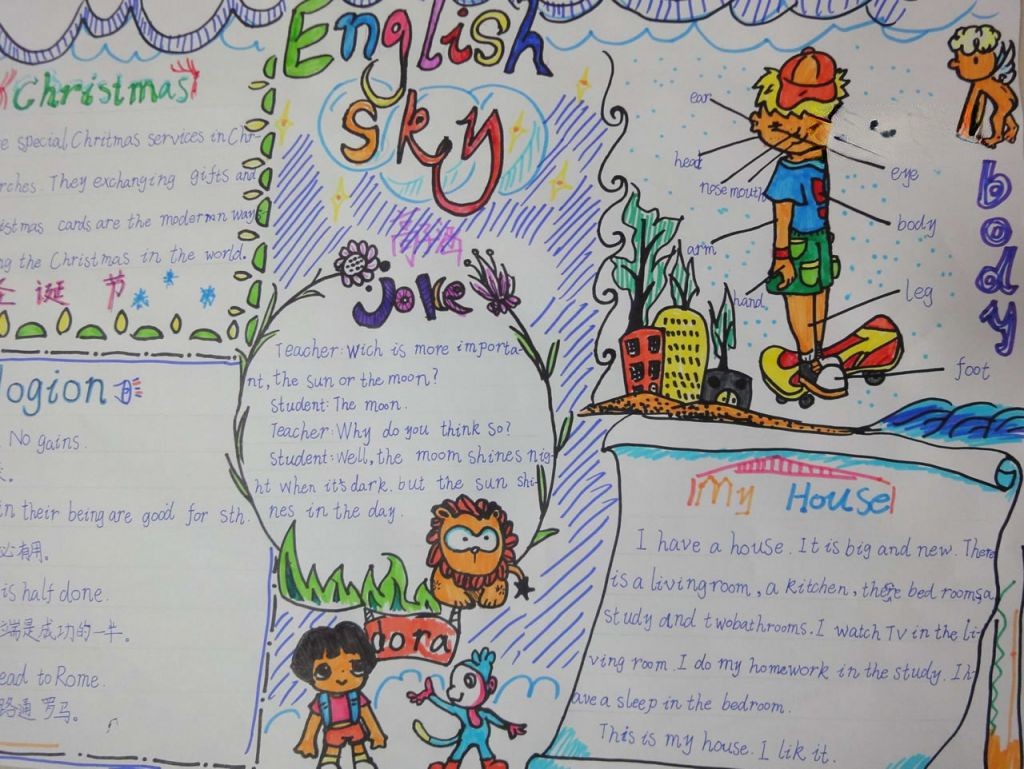 English
Sky
Christmas
e special Chritmas services in Chr-
rches. They exchanging gifts and
istmas cards are the modernan ways
ng the Christmas in the world.
圣诞节
logion
No gains.
in their being are good for sth.
必有用。
is half done.
端是成功的一半。
ead to Rome.
路通罗马。
Joke
Teacher: Wich is more importa-
nt, the sun or the moon?
Student: The moon.
Teacher: Why do you think so?
Student: Well, the moom shines nig-
ht when it's dark. but the sun shi-
nes in the day.
dora
body
ear
head
nose mouth
arm
hand
eye
body
leg
foot
My House
I have a house. It is big and new. There
is a living room, a kitchen, there bed rooms, a
study and two bathrooms. I watch TV in the li-
ving room. I do my homework in the study. I h-
ave a sleep in the bedroom.
This is my house. I lik it.